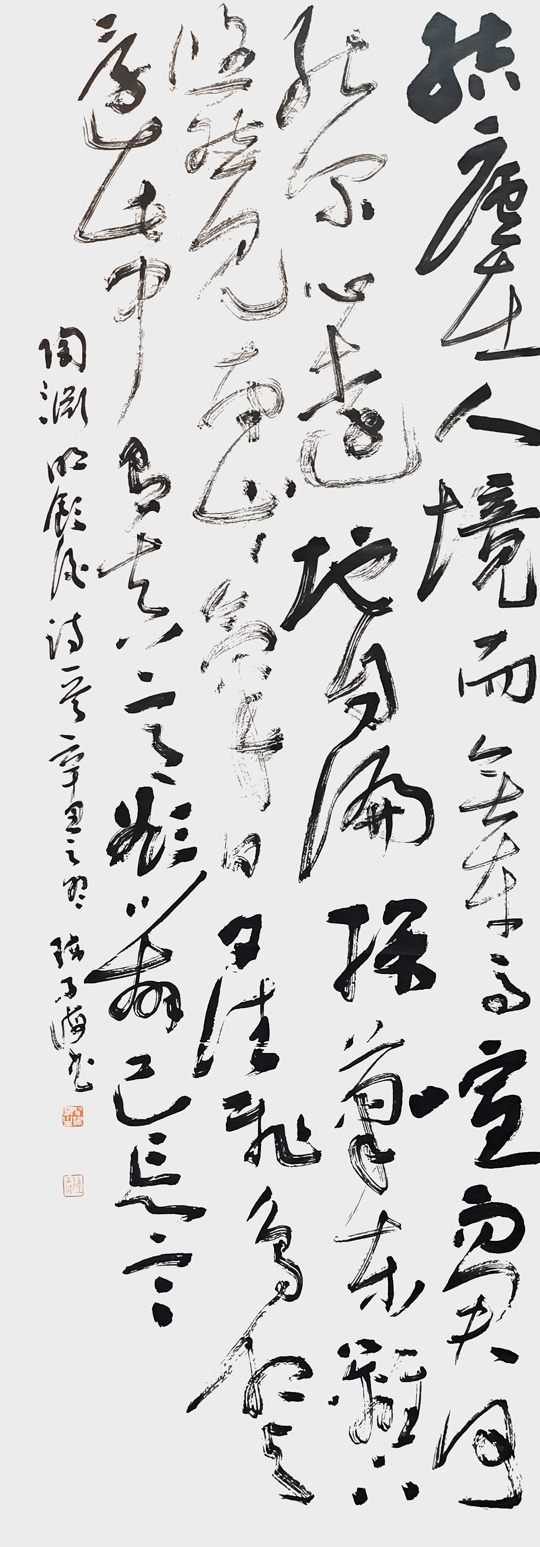 結廬在人境而無車馬喧問君何
能尔心遠地自偏採菊東籬下
悠然見南山〻氣日夕佳飛鳥相与
還此中有真意欲辨已忘言
陶渊明飲酒詩一首辛丑之 書